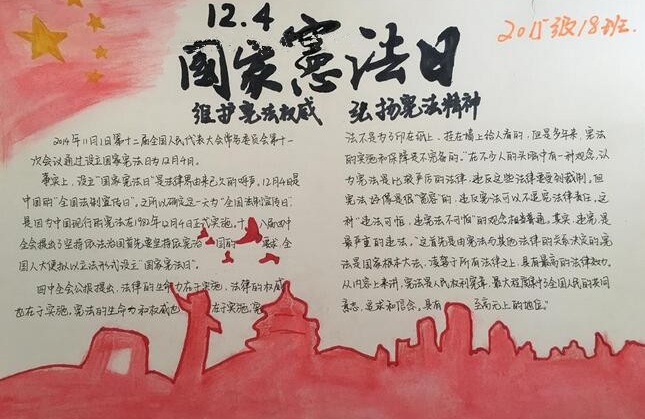 12.4
国家宪法日
2015级18班.
维护宪法权威 弘扬宪法精神
2014年11月1日第十二届全国人民代表大会常务委员会第十一
次会议通过设立国家宪法日为12月4日。
事实上,设立"国家宪法日"是法律界由来已久的呼声。12月4日是
中国的"全国法制宣传日"。之所以确定这一天为"全国法制宣传日",
是因为中国现行的宪法在1982年12月4日正式实施。十八届四中
全会提出了坚持依法治国首先要坚持依宪治国的要求,全
国人大便拟以立法形式设立"国家宪法日"。
四中全会公报提出,法律的生命力在于实施,法律的权威
也在于实施。宪法的生命力和权威也在于实施,宪
法不是为了印在纸上,挂在墙上给人看的,但是多年来,宪法
的实施和保障是不完备的。"在不少人的头脑中有一种观念,认
为宪法是比较严厉的法律,违反这些法律要受到裁制。但
宪法好像是很"宽容"的,违反宪法可以不追究法律责任。这
种"违法可怕,违宪法不可怕"的观念相当普遍。其实,违宪是
最严重的违法。"这首先是由宪法与其他法律的关系决定的,宪
法是国家根本大法,凌驾于所有法律之上,具有最高的法律效力。
从内容上来讲,宪法是人民权利宪章,最大程度集中了全国人民的共同
意志、追求和信念。具有至高无上的地位。"